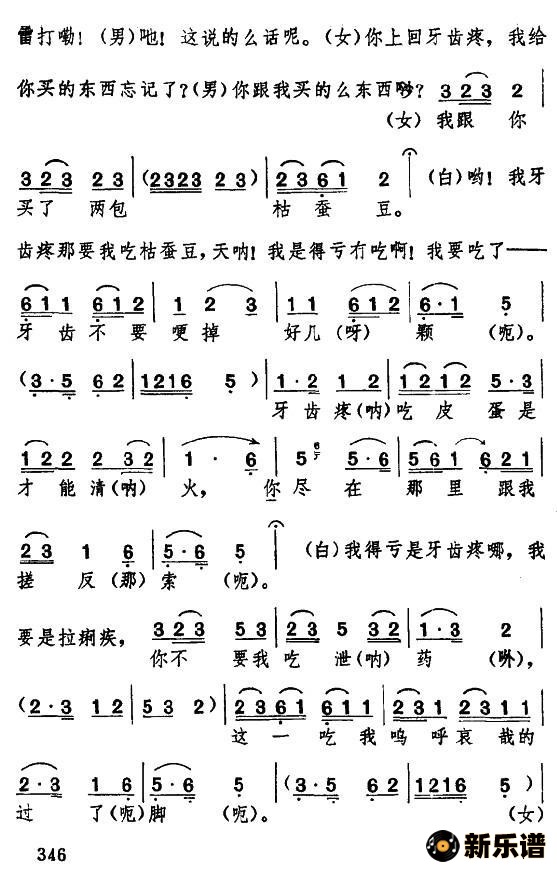 雷打嘞！（男）吔！这说的么话呢。（女）你上回牙齿疼，我给
你买的东西忘记了？（男）你跟我买的么东西哕？ 3 2 3 2
（女）我跟 你
3 2 3 2 3 (2323 2 3) 2 3 6 1 2 （白）哟！我牙
买了 两包 枯蚕 豆。
齿疼那要我吃枯蚕豆，天呐！我是得亏冇吃啊！我要吃了——
6 1 1 6 1 2 1 2 2 3 1 1 6 1 2 6·1 5
牙 齿 不 要 哽 掉 好几（呀） 颗 （呃）。
(3·5 6 2 1216 5) 1·2 1 2 1 2 1 2 5·3
牙 齿 疼（呐）吃 皮 蛋 是
1 2 2 2 3 2 1 · 6 5 6 5·6 5 6 1 6 2 1
才 能 清（呐） 火， 你 尽 在 那 里 跟我
2 3 1 6 5·6 5 （白）我得亏是牙齿疼哪，我
搓 反（那） 索 （呃）。
要是拉痢疾， 3 2 3 5 3 2 3 5 3 2 1·3 2
你不 要我 吃 泄（呐） 药
(2·3 1 2 5 3 2) 2 3 6 1 6 1 1 2 3 1 2 3 1 1
这 一 吃 我 呜 呼 哀 哉的
2·3 1 6 5·6 5 (3·5 6 2 1216 5)
过 了（呃）脚 （呃）。 （女）
346
新乐谱